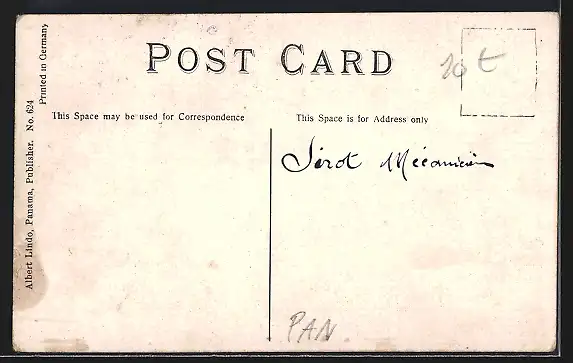 POST CARD
10 t
This Space may be used for Correspondence
This Space is for Address only
Sérot Mécanicien
PAN
Albert Lindo, Panama, Publisher. No. 624
Printed in Germany